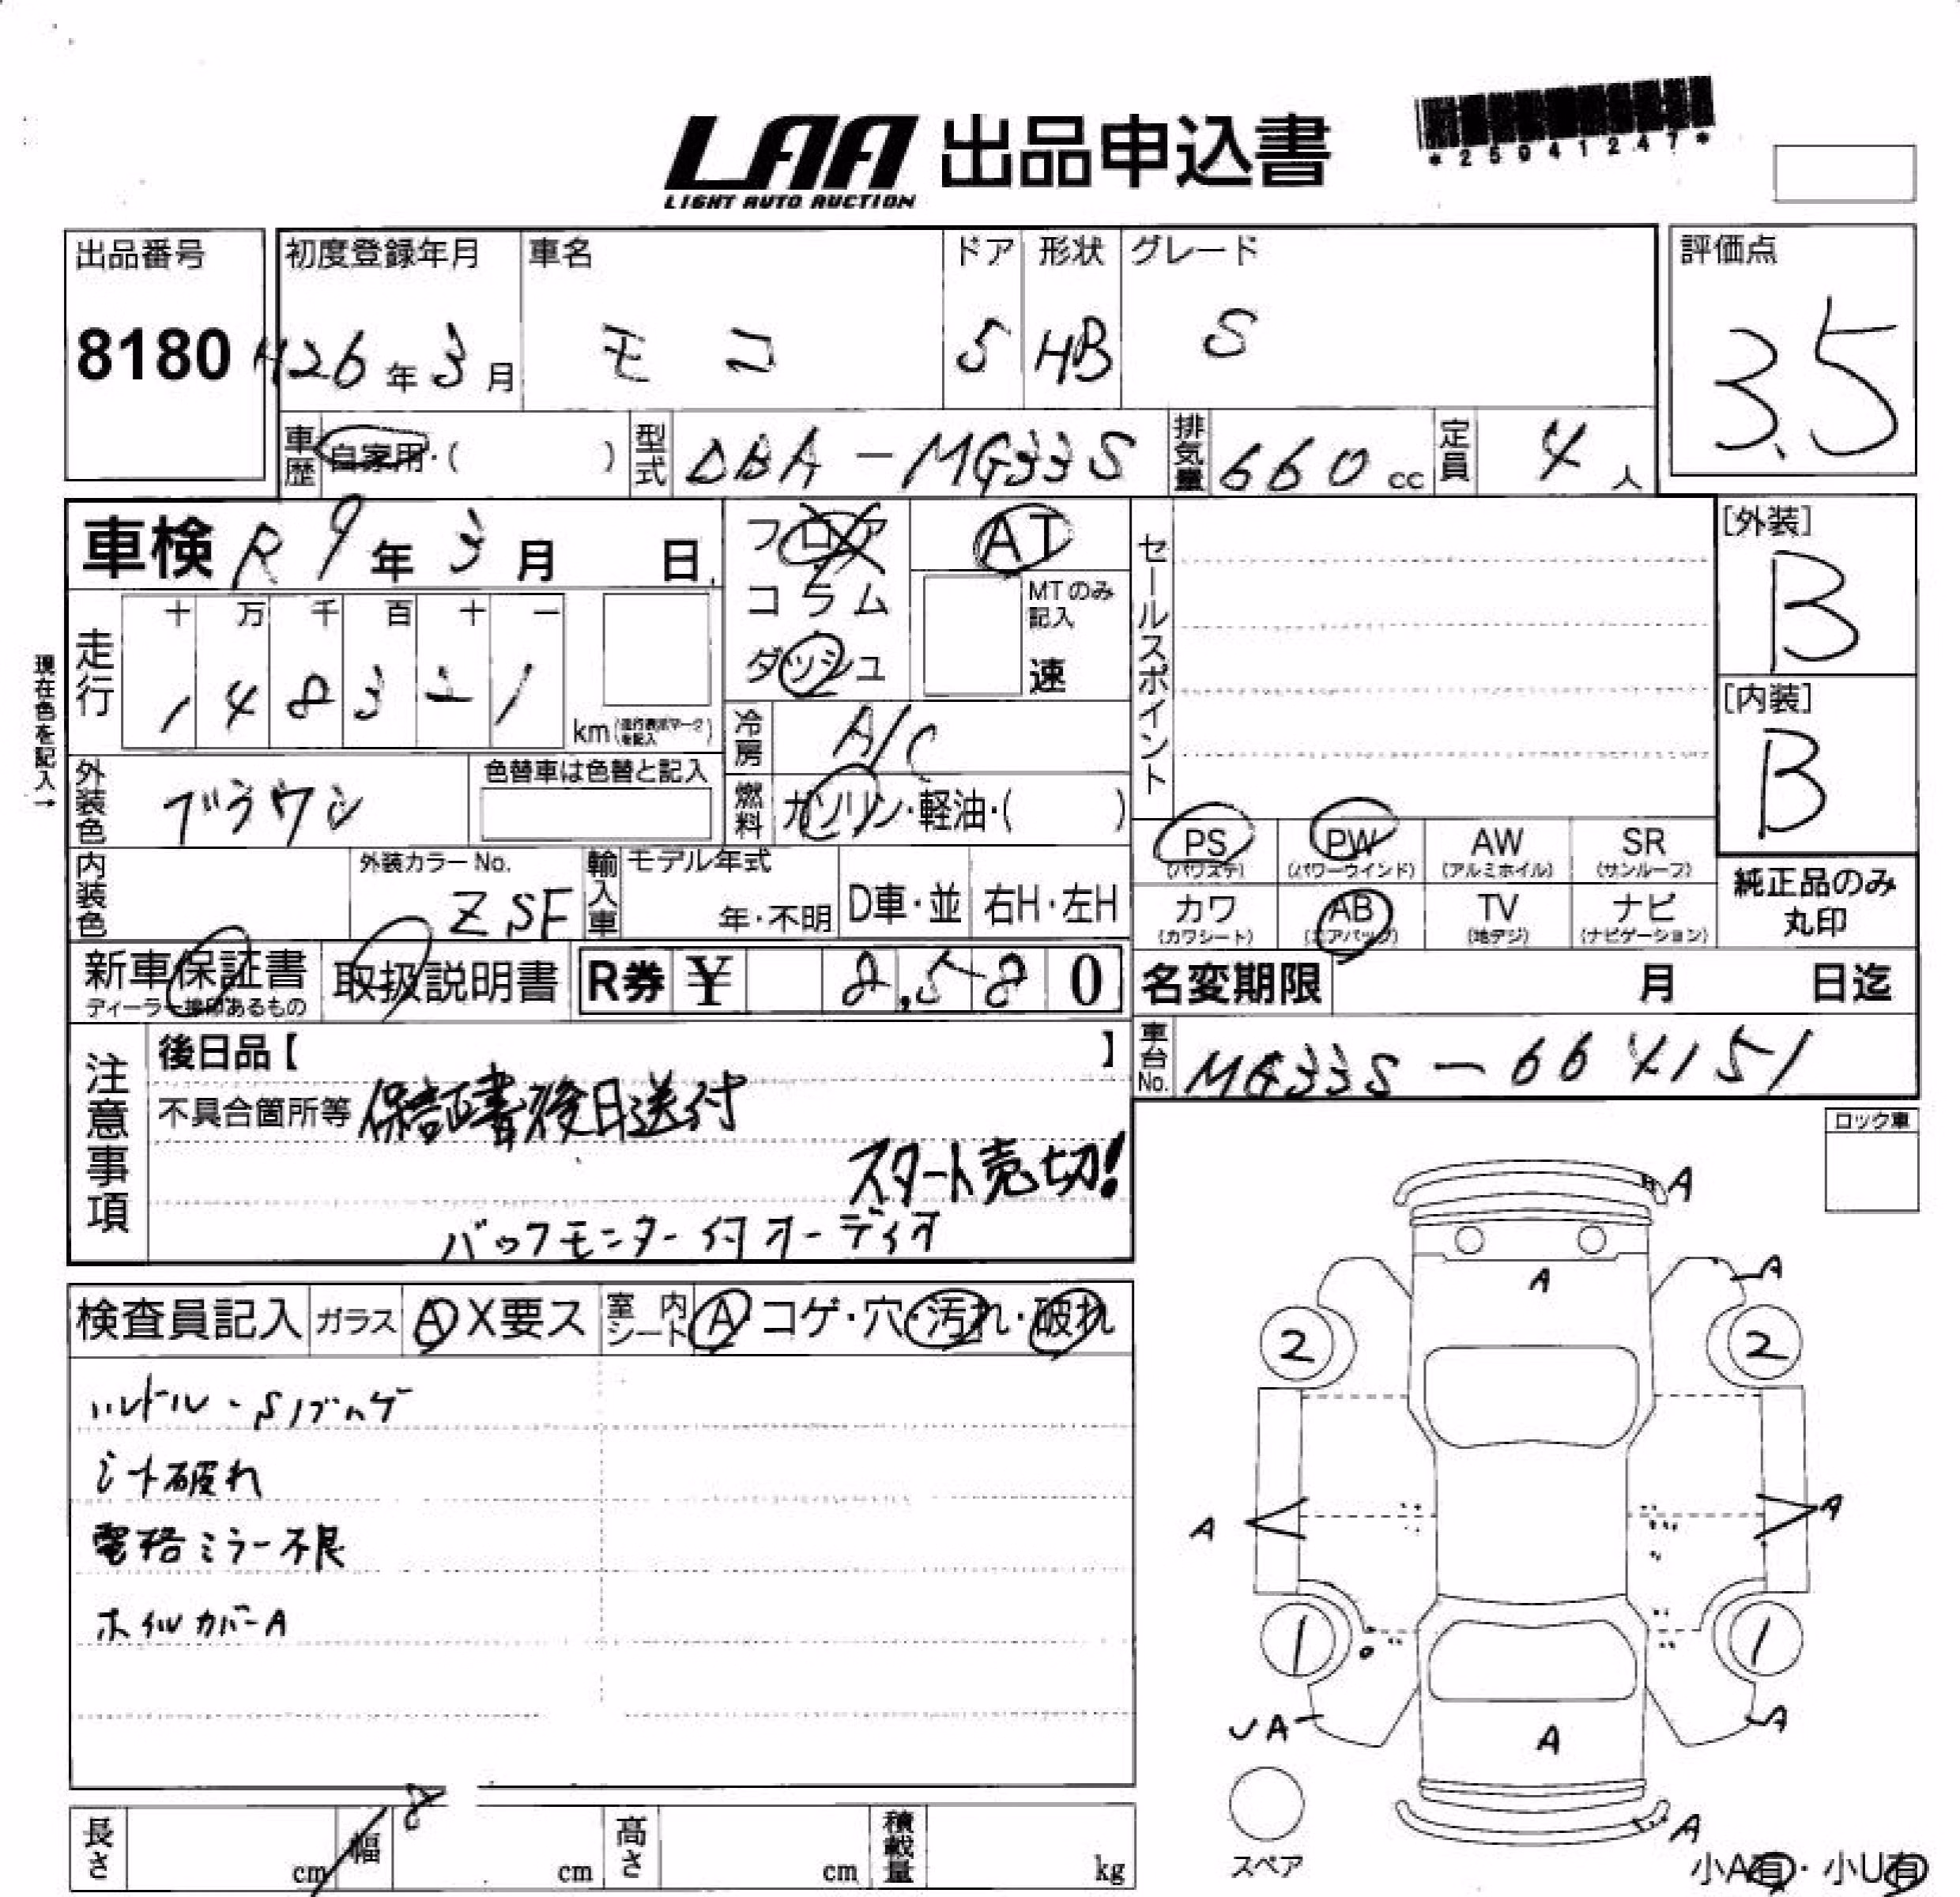 LAA 出品申込書
LIGHT AUTO AUCTION
*25041247*
出品番号
8180
初度登録年月
H26年3月
車名
モコ
ドア
5
形状
HB
グレード
S
評価点
3.5
車歴 自家用・( )
型式 DBA-MG33S
排気量 660cc
定員 4人
車検 R9年3月 日
フロア
コラム
ダッシュ
AT
MTのみ記入
速
セールスポイント
[外装]
B
[内装]
B
現在色を記入→
走行
十 万 千 百 十 一
1 4 8 3 2 1
km
冷房 A/C
外装色 ブラウン
色替車は色替と記入
燃料 ガソリン・軽油・( )
内装色
外装カラーNo.
ZSF
輸入車
モデル年式
年・不明
D車・並
右H・左H
PS (パワステ)
PW (パワーウインド)
AW (アルミホイル)
SR (サンルーフ)
カワ (カワシート)
AB (エアバッグ)
TV (地デジ)
ナビ (ナビゲーション)
純正品のみ
丸印
新車保証書
ディーラー捺印あるもの
取扱説明書
R券 ¥ 8,580
名変期限 月 日迄
車台No. MG33S-664151
注意事項
後日品【 】
不具合箇所等 保証書後日送付
スタート売切!
バックモニター付オーディオ
ロック車
検査員記入
ガラス A X要ス
室内シート A コゲ・穴・汚れ・破れ
ハンドル・Sノブハゲ
シート破れ
電格ミラー不良
ホイルカバーA
A
A
A
2
2
A
A
1
1
UA
A
A
A
スペア
小A有・小U有
長さ cm
幅 cm
高さ cm
積載量 kg
8